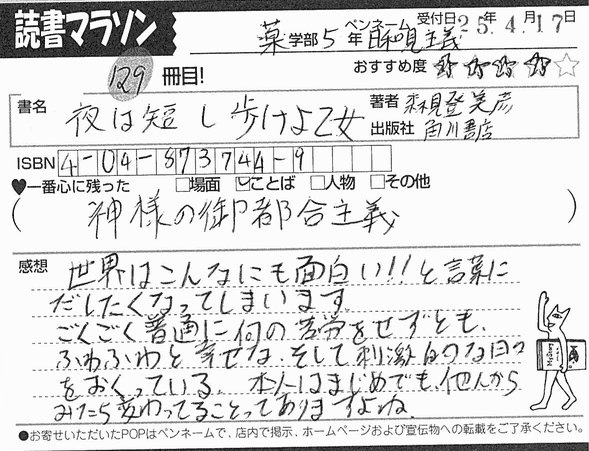 読書マラソン
薬学部5年 ペンネーム 主義 受付日25年4月17日
129冊目! おすすめ度 ☆☆☆☆☆
書名 夜は短し歩けよ乙女 著者 森見登美彦
出版社 角川書店
ISBN 4-04-873744-9
♥一番心に残った □場面 ☑ことば □人物 □その他
(神様の御都合主義)
感想 世界はこんなにも面白い!!と言葉に
だしたくなってしまいます
ごくごく普通に何の苦労をせずとも、
ふわふわと幸せな、そして刺激的な日々
をおくっている。本人はまじめでも、他人から
みたら変わってることってありますよね。
●お寄せいただいたPOPはペンネームで、店内で掲示、ホームページおよび宣伝物への転載をご了承ください。